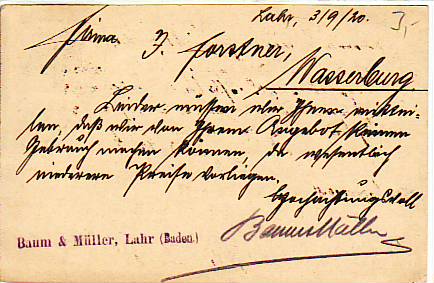 Lahr, 3/9/20.
3,-
Firma J. Forstner,
Wasserburg.
Leider müssen wir Ihnen mittei-
len, daß wir von Ihrem Angebot keinen
Gebrauch machen können, da wesentlich
niederere Preise vorliegen.
hochachtungsvoll
Baum & Müller
Baum & Müller, Lahr (Baden)